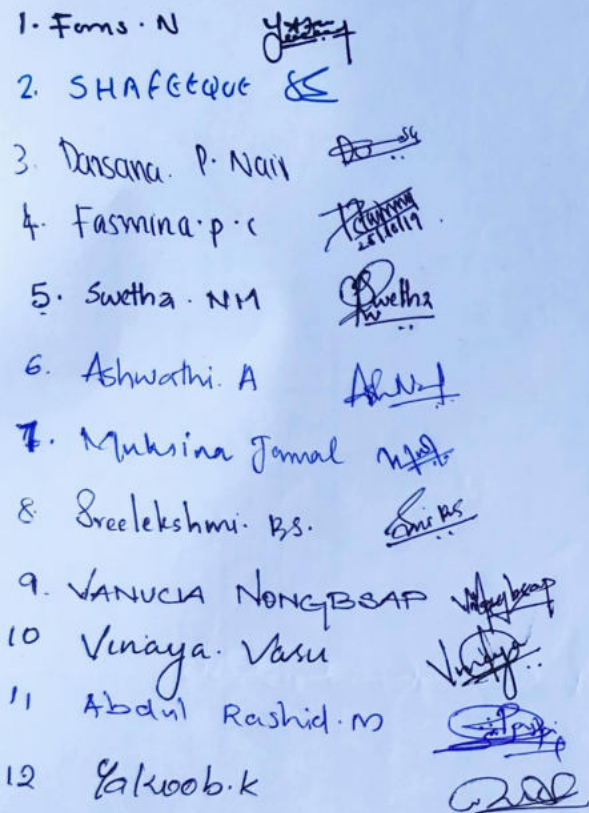 1. Fams. N
2. SHAFEEQUE
3. Darsana. P. Nair
4. Fasmina. p. c
25/10/19
5. Swetha. NM Swetha
6. Ashwathi. A
7. Muhsina Jamal
8. Sreelekshmi. BS.
9. VANUCIA NONGBSAP
10 Vinaya. Vasu Vinaya
11 Abdul Rashid. M
12 Yakoob. K